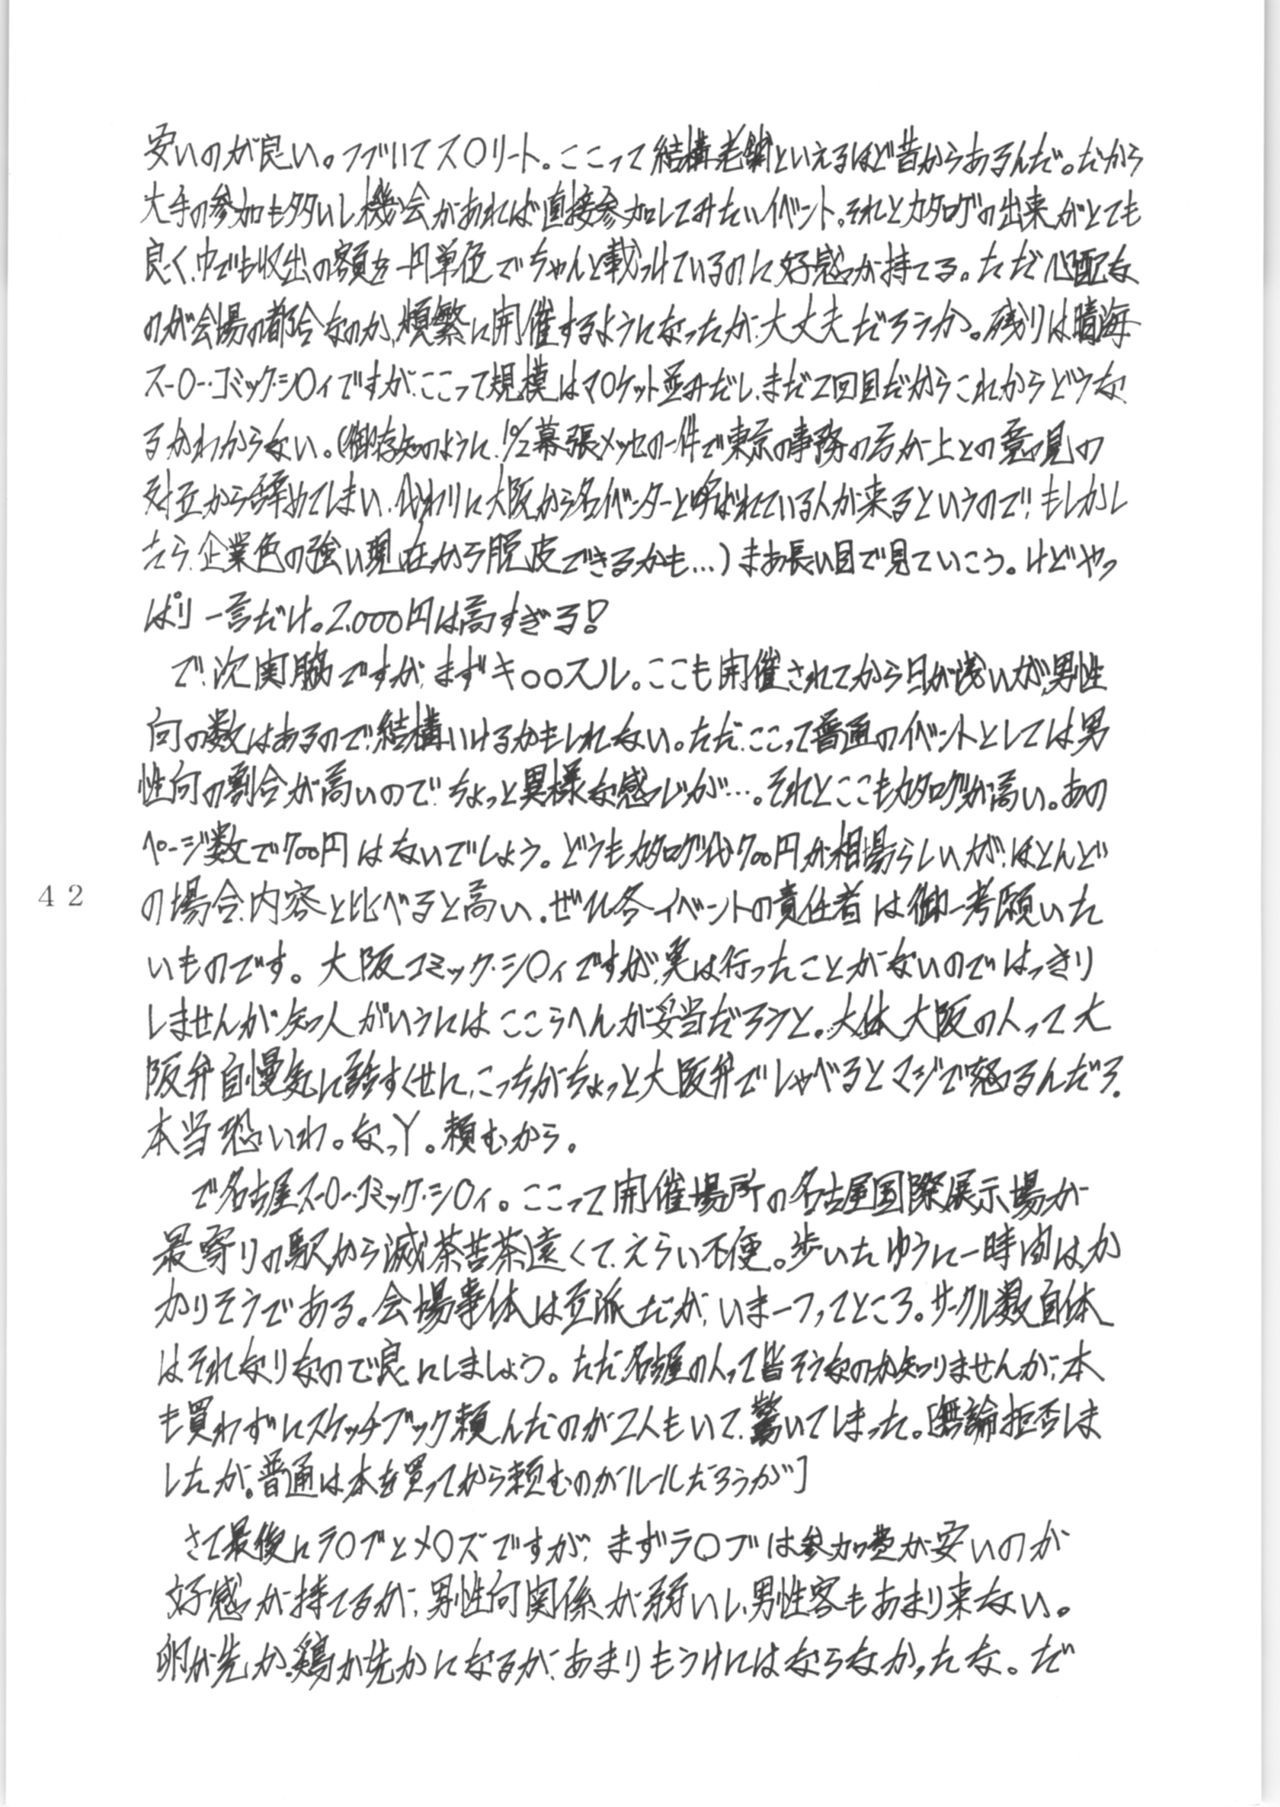 安いのが良い。つづいてス〇リート。ここって結構老舗といえるほど昔からあるんだ。だから
大手の参加も多いし機会があれば直接参加してみたいイベント。それとカタログの出来がとても
良く、中でも収出の額を一円単位でちゃんと載っけているのに好感が持てる。ただ心配な
のが会場の都合なのか、頻繁に開催するようになったが、大丈夫だろうか。残りは晴海
ス-〇-・コミック・シ〇ィですが、ここって規模はマ〇ケット並みだし、まだ2回目だからこれからどうな
るかわからない。(御存知のように、10/2幕張メッセの一件で東京の事務の方が上との意見の
対立から辞めてしまい、代わりに大阪から名イベンターと呼ばれている人が来るというので!もしかし
たら、企業色の強い現在から脱皮できるかも…)まあ長い目で見ていこう。けどやっ
ぱり一言だけ。2,000円は高すぎる!
で、次実脇ですが、まずキ〇〇スル。ここも開催されてから日が浅いが、男性
向の数はあるので、結構いけるかもしれない。ただ、ここって普通のイベントとしては男
性向の割合が高いので、ちょっと異様な感じが…。それとここもカタログが高い。あの
ページ数で700円はないでしょう。どうもカタログ代700円が相場らしいが、ほとんど
の場合、内容と比べると高い。ぜひ各イベントの責任者は御一考願いた
いものです。大阪コミック・シ〇ィですが、実は行ったことがないのではっきり
しませんが、知人がいうにはここらへんが妥当だろうと。大体大阪の人って大
阪弁自慢気に話すくせに、こっちがちょっと大阪弁でしゃべるとマジで怒るんだろ、
本当恐いわ。なっY。頼むから。
で名古屋ス-〇-・コミック・シ〇ィ。ここって開催場所の名古屋国際展示場が
最寄りの駅から滅茶苦茶遠くて、えらい不便。歩いたゆうに一時間はか
かりそうである。会場事体は立派だが、いま一つってところ。サークル数自体
はそれなりなので良にしましょう。ただ名古屋の人って皆そうなのか知りませんが、本
も買わずにスケッチブック頼んだのが2人もいて、驚いてしまった。[無論拒否しま
したが。普通は本を買ってから頼むのがルールだろうが]
さて最後にラ〇ブとメ〇ズですが、まずラ〇ブは参加費が安いのが
好感が持てるが、男性向関係が弱いし、男性客もあまり来ない。
卵が先か、鶏が先かになるが、あまりもうけにはならなかったな。だ
42